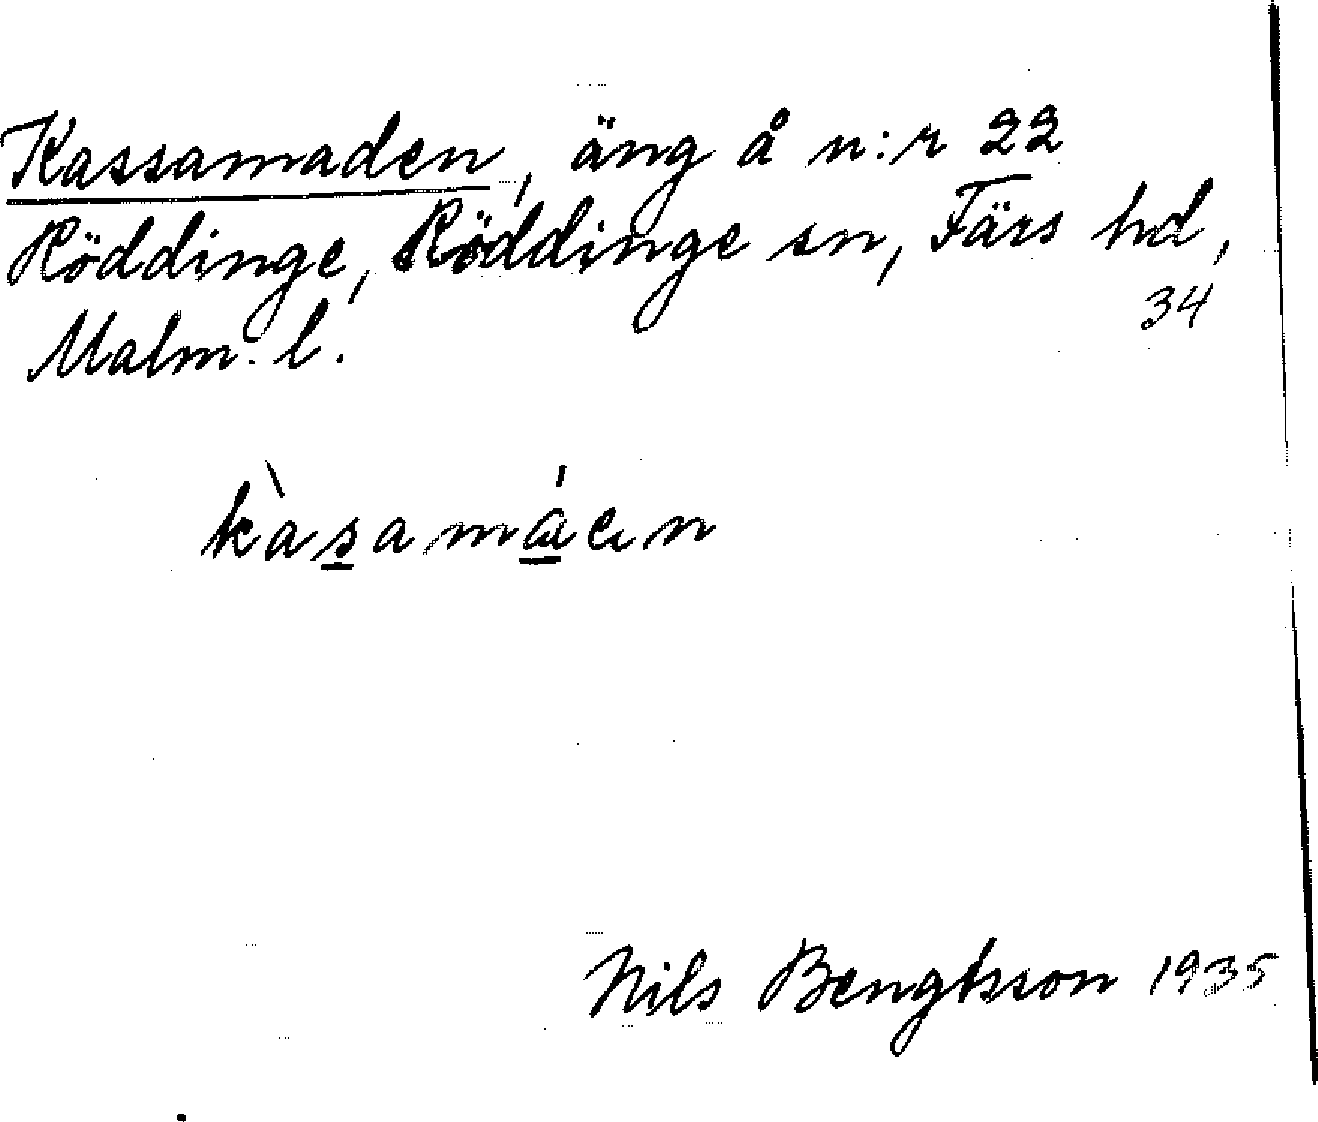 Kassamaden, äng å n:r 22
Röddinge, Röddinge sn, Färs hd,
34
Malm. l.
kàsamáen
Nils Bengtsson 1935